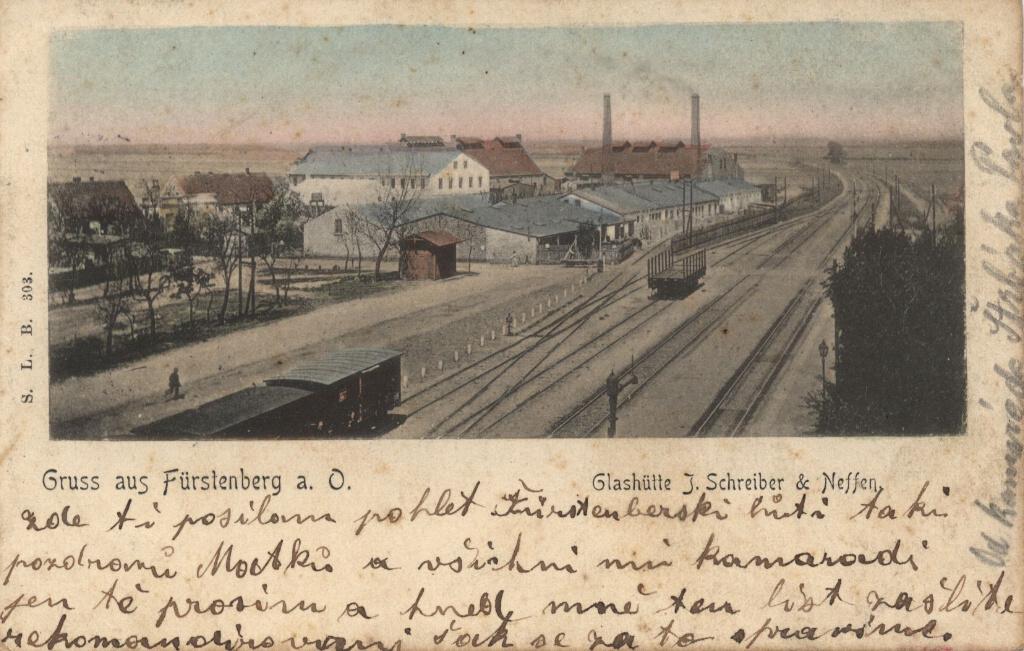 S. L. B. 393.
Gruss aus Fürstenberg a. O.
Glashütte J. Schreiber & Neffen.
zde ti posilam pohlet Fürstenberski huti taki
pozdravu Matku a všichni mi kamaradi
jen tě prosim a hned mně ten list zašlite
rekomandirovani šak se za to spravime.
Od kamaráda